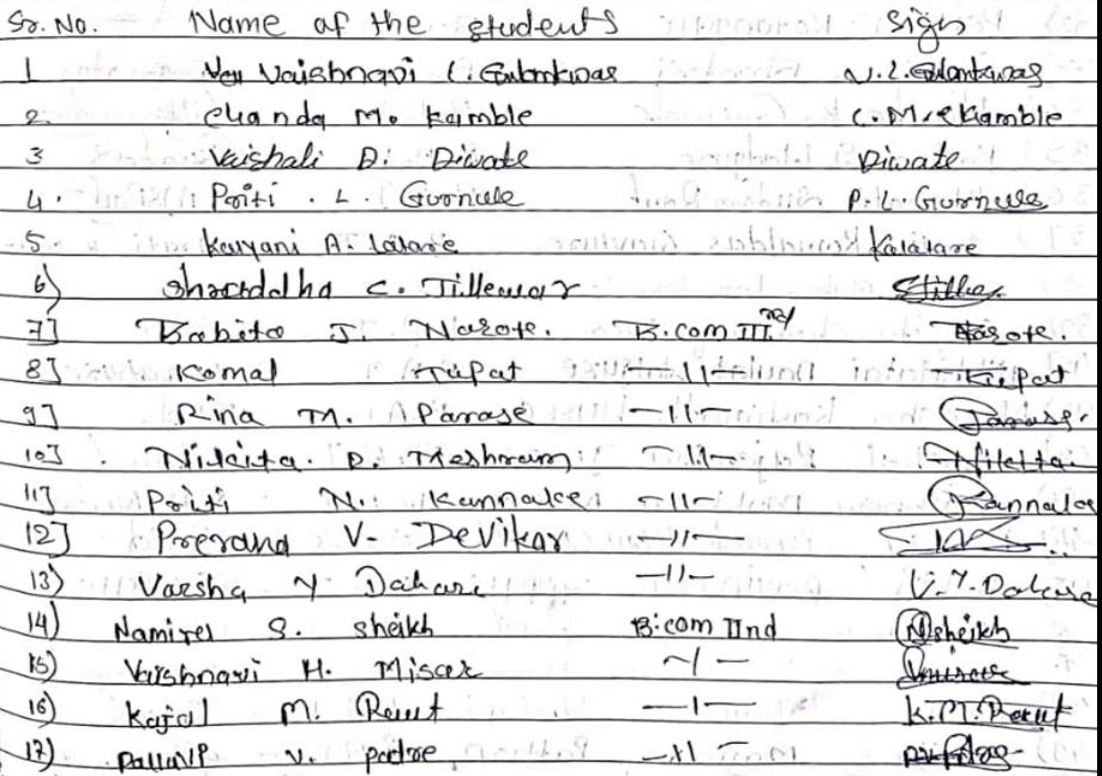 Sr. No. Name of the students Sign
1 Vaishnavi L. Gulankwar V.L.Gulankwar
2 Chanda M. Kamble C.M. Kamble
3 Vaishali D. Diwate Diwate
4. Priti . L . Gurnule P.L. Gurnule
5 Kalyani A.
6) Shraddha C. Tillewar
7] Babita J. Narote. B.com III Narote.
8] Komal Kupat —11— Kupat
9] Rina M. Parase —11— Parase
10] Nikita. D. Meshram —11— Nikita
11] Priti N. Kannake —11— Kannake
12] Prerana V- Devikar —11—
13) Varsha Y Dahare —11— V.Y. Dahare
14) S. Sheikh B.com IInd NSheikh
15) Vaishnavi H. Misar
16) Kajal M. Raut —1— K.M. Raut
17) V.